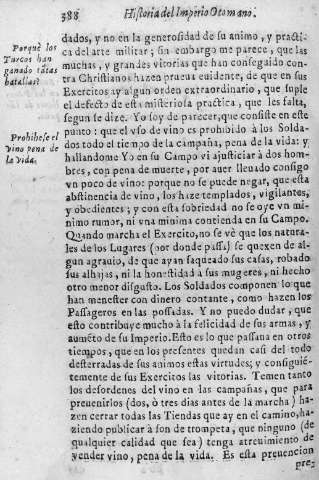 388 Historia del Imperio Otomano.
Porquè los
Turcos han
ganado tãtas
batallas?
Prohibese el
vino pena de
la vida.
dados, y no en la generosidad de su animo, y practi-
ca del arte militar; sin embargo me parece, que las
muchas, y grandes vitorias que han conseguido con-
tra Christianos hazen prueua euidente, de que en sus
Exercitos ay algun orden extraordinario, que suple
el defecto de esta misteriosa practica, que les falta,
segun se dize. Yo soy de parecer, que consiste en este
punto: que el vso de vino es prohibido à los Solda-
dos todo el tiempo de la campaña, pena de la vida: y
hallandome Yo en su Campo vi ajusticiar à dos hom-
bres, con pena de muerte, por auer lleuado consigo
vn poco de vino: porque no se puede negar, que esta
abstinencia de vino, los haze templados, vigilantes,
y obedientes; y con esta sobriedad no se oye vn mi-
nimo rumor, ni vna minima contienda en su Campo.
Quando marcha el Exercito, no se vè que los natura-
les de los Lugares (por donde passa) se quexen de al-
gun agrauio, de que ayan saqueado sus casas, robado
sus alhajas, ni la honestidad a sus mugeres, ni hecho
otro menor disgusto. Los Soldados componen lo que
han menester con dinero contante, como hazen los
Passageros en las possadas. Y no puedo dudar, que
esto contribuye mucho à la felicidad de sus armas, y
aumẽto de su Imperio. Esto es lo que passaua en otros
tiempos, que en los presentes quedan casi del todo
desterradas de sus animos estas virtudes; y consiguié-
temente de sus Exercitos las vitorias. Temen tanto
los desordenes del vino en las campañas, que para
preuenirlos (dos, ò tres dias antes de la marcha) ha-
zen cerrar todas las Tiendas que ay en el camino, ha-
ziendo publicar à son de trompeta, que ninguno (de
qualquier calidad que sea) tenga atreuimiento de
vender vino, pena de la vida. Es esta preuencion
pre-